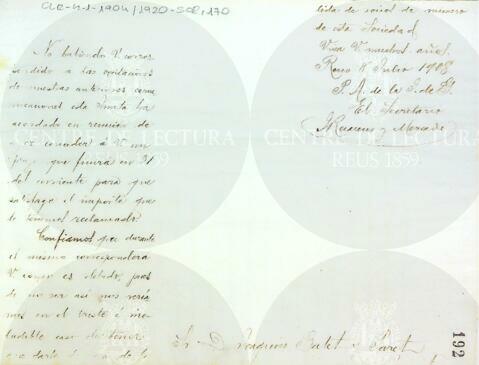 CLE-4.1-1904/1920-SOL,170
No habiendo V corres
pondido a las
de nuestras anteriores comu
nicaciones esta Junta ha
acordado en reunión de
conceder á V un
plazo que finirá en 31
del corriente para que
satisfaga el importe que
le tenemos reclamado.
Confiamos que durante
el mismo corresponderá
V como es debido, pues
de no ser así nos vería
mos en el triste é ine
ludible caso de tener
que darle de
lista de socios de número
de esta Sociedad
Viva V muchos años.
Reus 8 Julio 1908
P. A. de la J. de G.
El Secretario
y Mercadé
Sr D. Joaquim Batet y
192
CENTRE DE LECTURA
REUS 1859
CENTRE DE LECTURA
REUS 1859